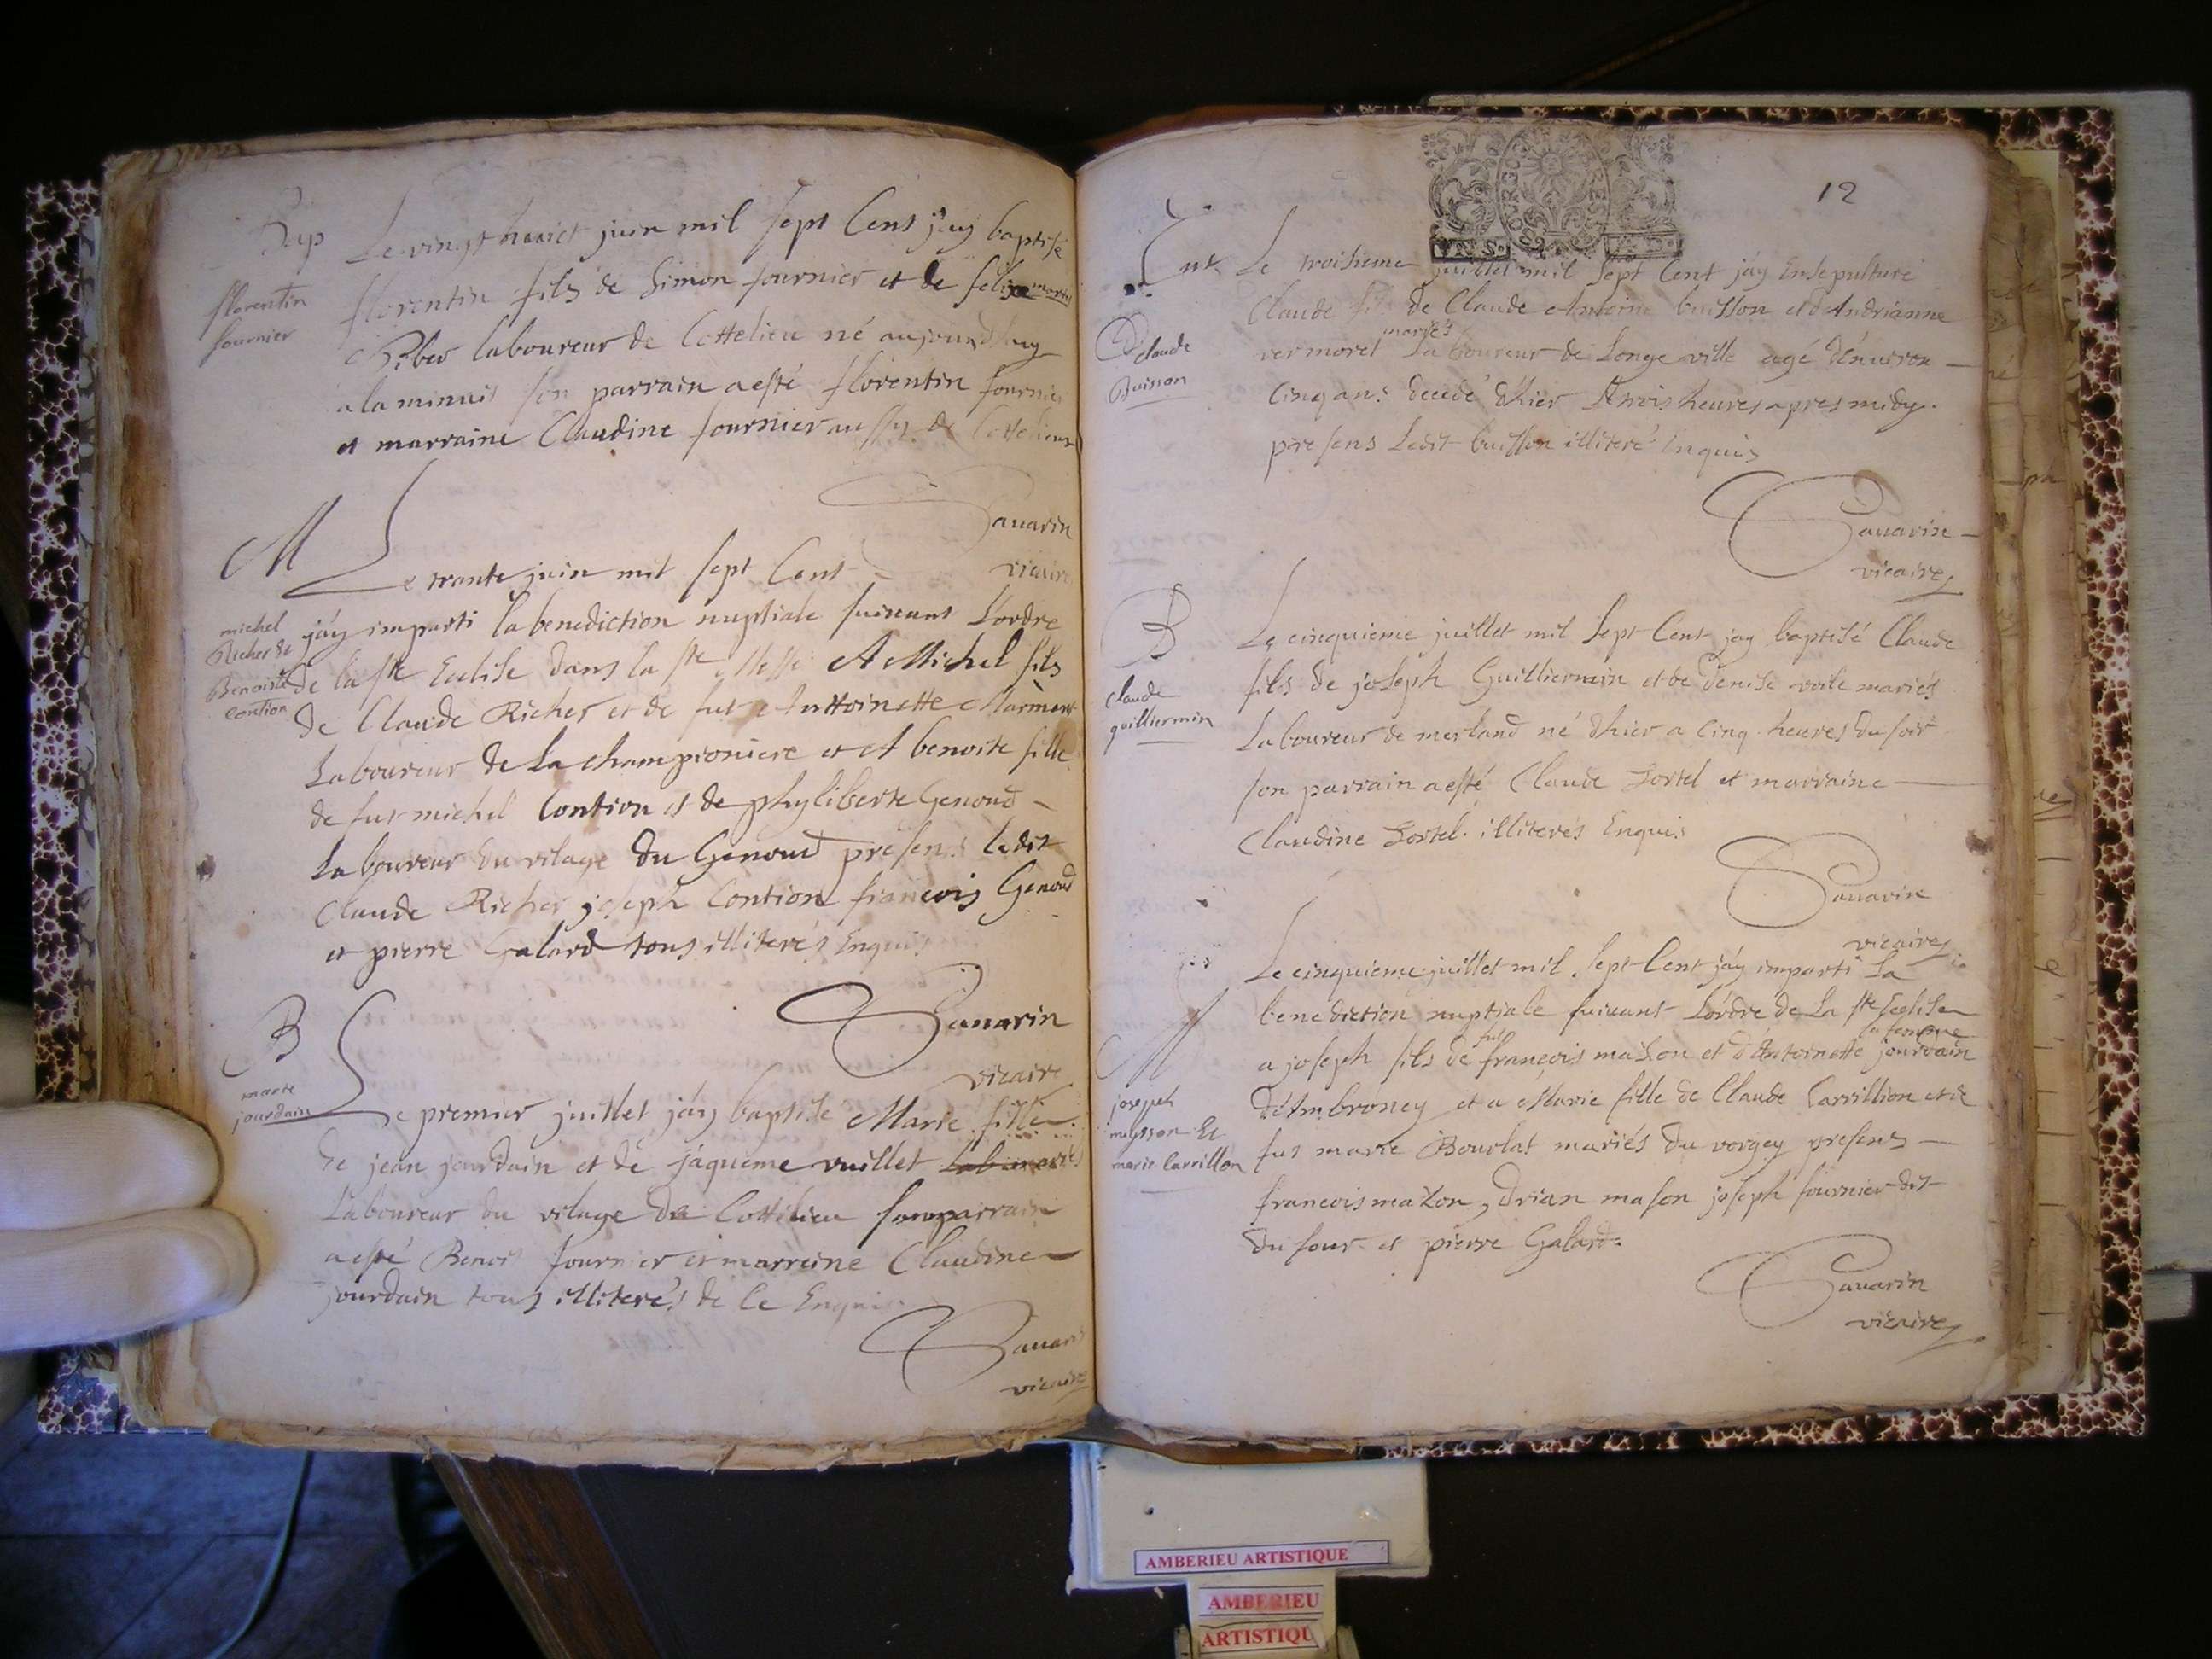 Bap
florentin
fournier
Le vingt huict juin mil sept Cens jay baptisé
florentin fils de Simon fournier et de
laboureur de Cottelieu né aujourdhuy
a la minuit son parrain a esté florentin fournier
et marraine Claudine fournier aussy de Cottelieu
Sauarin
vicaire
M
michel
Richer et
Benoiste
Contion
Le trante juin mil sept Cent
jáy imparti la benediction nuptiale suiuant Lordre
de la ste Eglise dans la ste Messe A Michel fils
de Claude Richer et de fut Anttoinette Marmont
Laboureur de La championiere et A benoite fille
de fut michel Contion et de phyliberte Genoud
Laboureur du vilage du Genoud presens ledit
Claude Richer joseph Contion francois Genoud
et pierre Galard tous illiterés Enquis
Sauarin
vicaire
B
marie
jourdain
Le premier juillet jáy baptisé Marie fille
de jean jourdain et de jaqueme vuillet
Laboureur du vilage de Cottelieu son parrain
a esté Benoit fournier et marreine Claudine
jourdain tous illiterés de Ce Enquis
Sauarin
vicaire
12
Ent
Claude
Buisson
Le troisieme juillet mil sept Cent jáy Ensepulturé
Claude fils de Claude Antoine buisson et d'Andrianne
vermorel mariés Laboureur de Longe ville agé d'enuiron
Cinq ans decedé d'hier A trois heures apres midy.
presens Ledit buisson illiteré Enquis
Sauarin
vicaire
B
claude
guilliermin
Le cinquieme juillet mil sept Cent jay baptisé Claude
fils de joseph Guilliermin et de denise voile mariés
Laboureur de merland né d'hier a Cinq heures du soir
son parrain a esté Claude Tortel et marraine
Claudine Tortel illiterés Enquis
Sauarin
vicaire
M
joseph
meysson Et
marie Carrillon
Le cinquieme juillet mil sept Cent jáy imparti La
benediction nuptiale suiuant Lórdre de La ste Eeglise
a joseph fils de fut francois maison et d'Antoinette jourdain sa femme
d'Ambroney et a Marie fille de Claude Carrillion et de
fut marie Bourlat mariés du vorgey presens
francois maison, drian mason joseph fournier dit
du four et pierre Galard.
Sauarin
vicaire
AMBERIEU ARTISTIQUE
AMBERIEU
ARTISTIQU